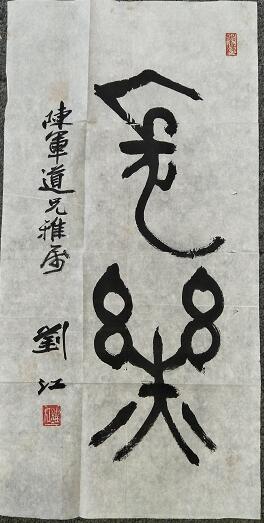 安樂
陳軍道兄雅屬
劉江